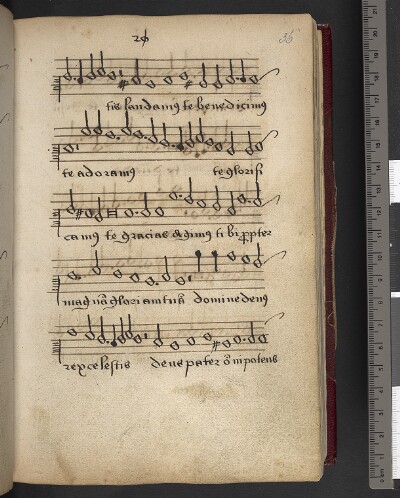 36
tis laudamus te benedicimus
te adoramus te glorifi
camus te gracias agimus tibi propter
magnā gloriam tuā domine deus
rex celestis deus pater oīnipotens